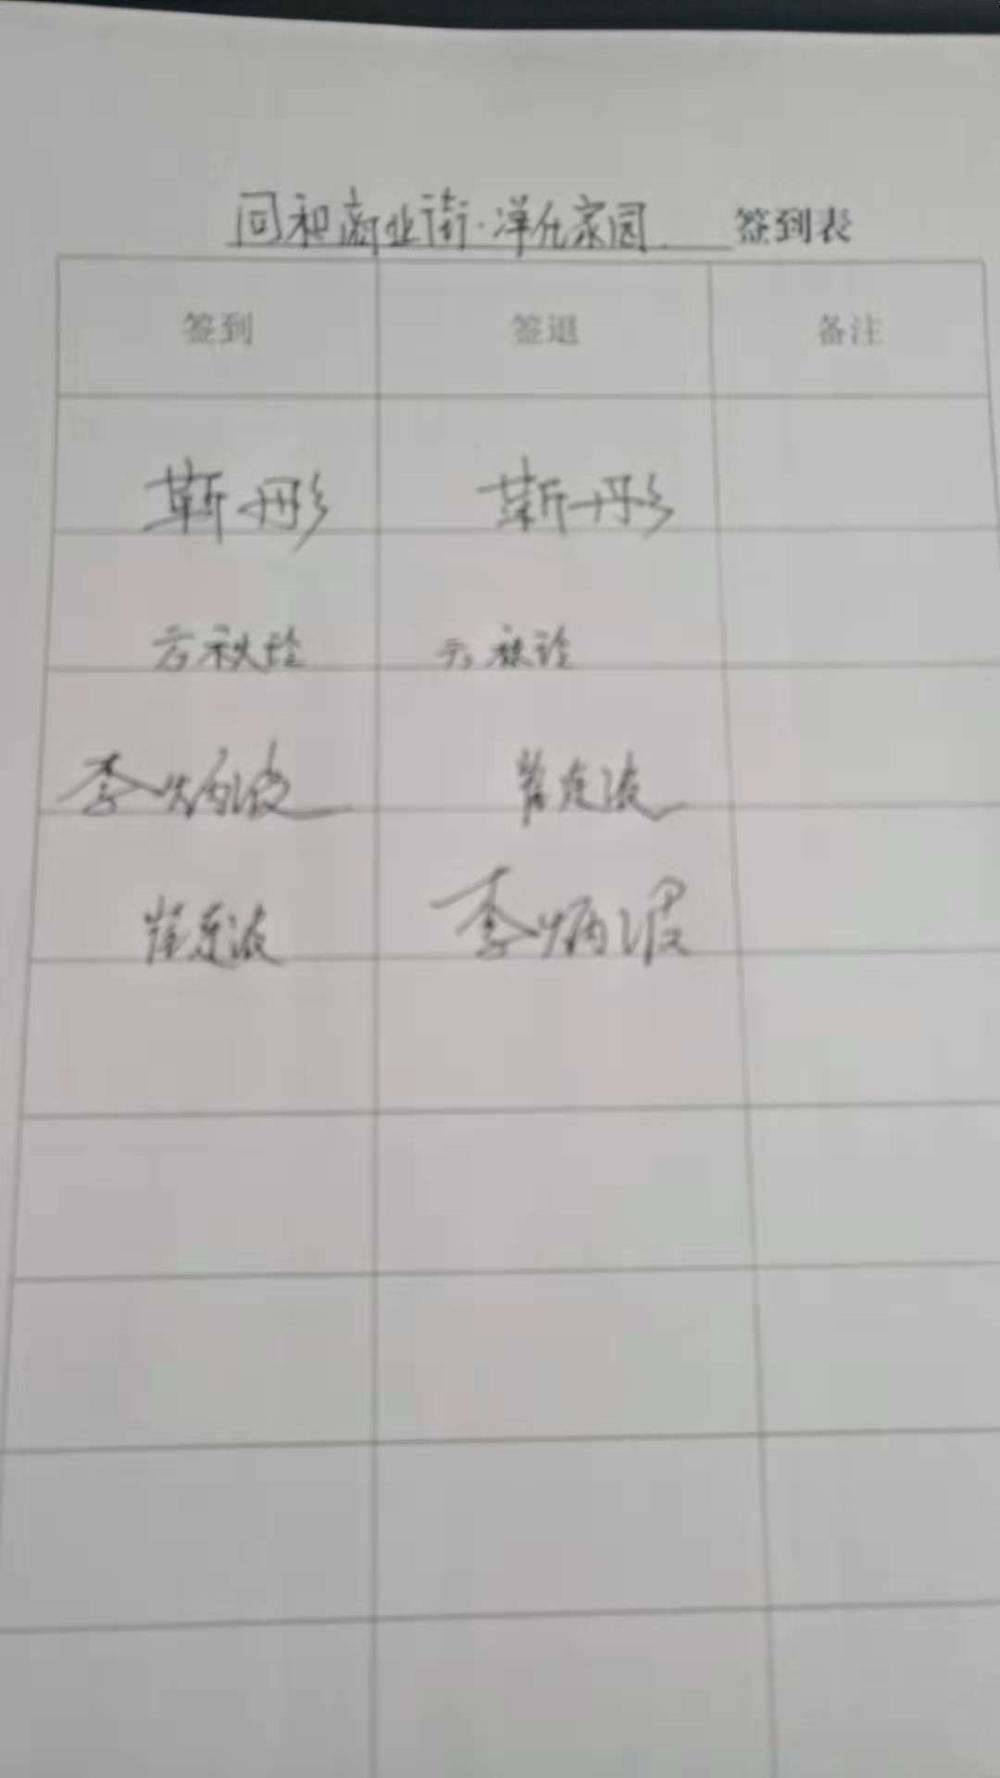 回和商业街·洋化家园 签到表
签到 签退 备注
靳彤 靳彤
方秋玲 方秋玲
李炳波 崔连波
崔连波 李炳波